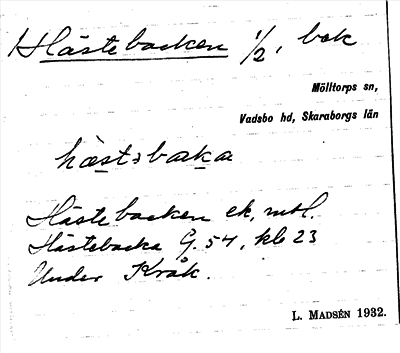 Hästebacken 1/2, bok
Mölltorps sn,
Vadsbo hd, Skaraborgs län
hæstəbaka
Hästebacken ek, mtl.
Hästebacka G. 54, kb 23
Under Kråk.
L. MADSÉN 1932.